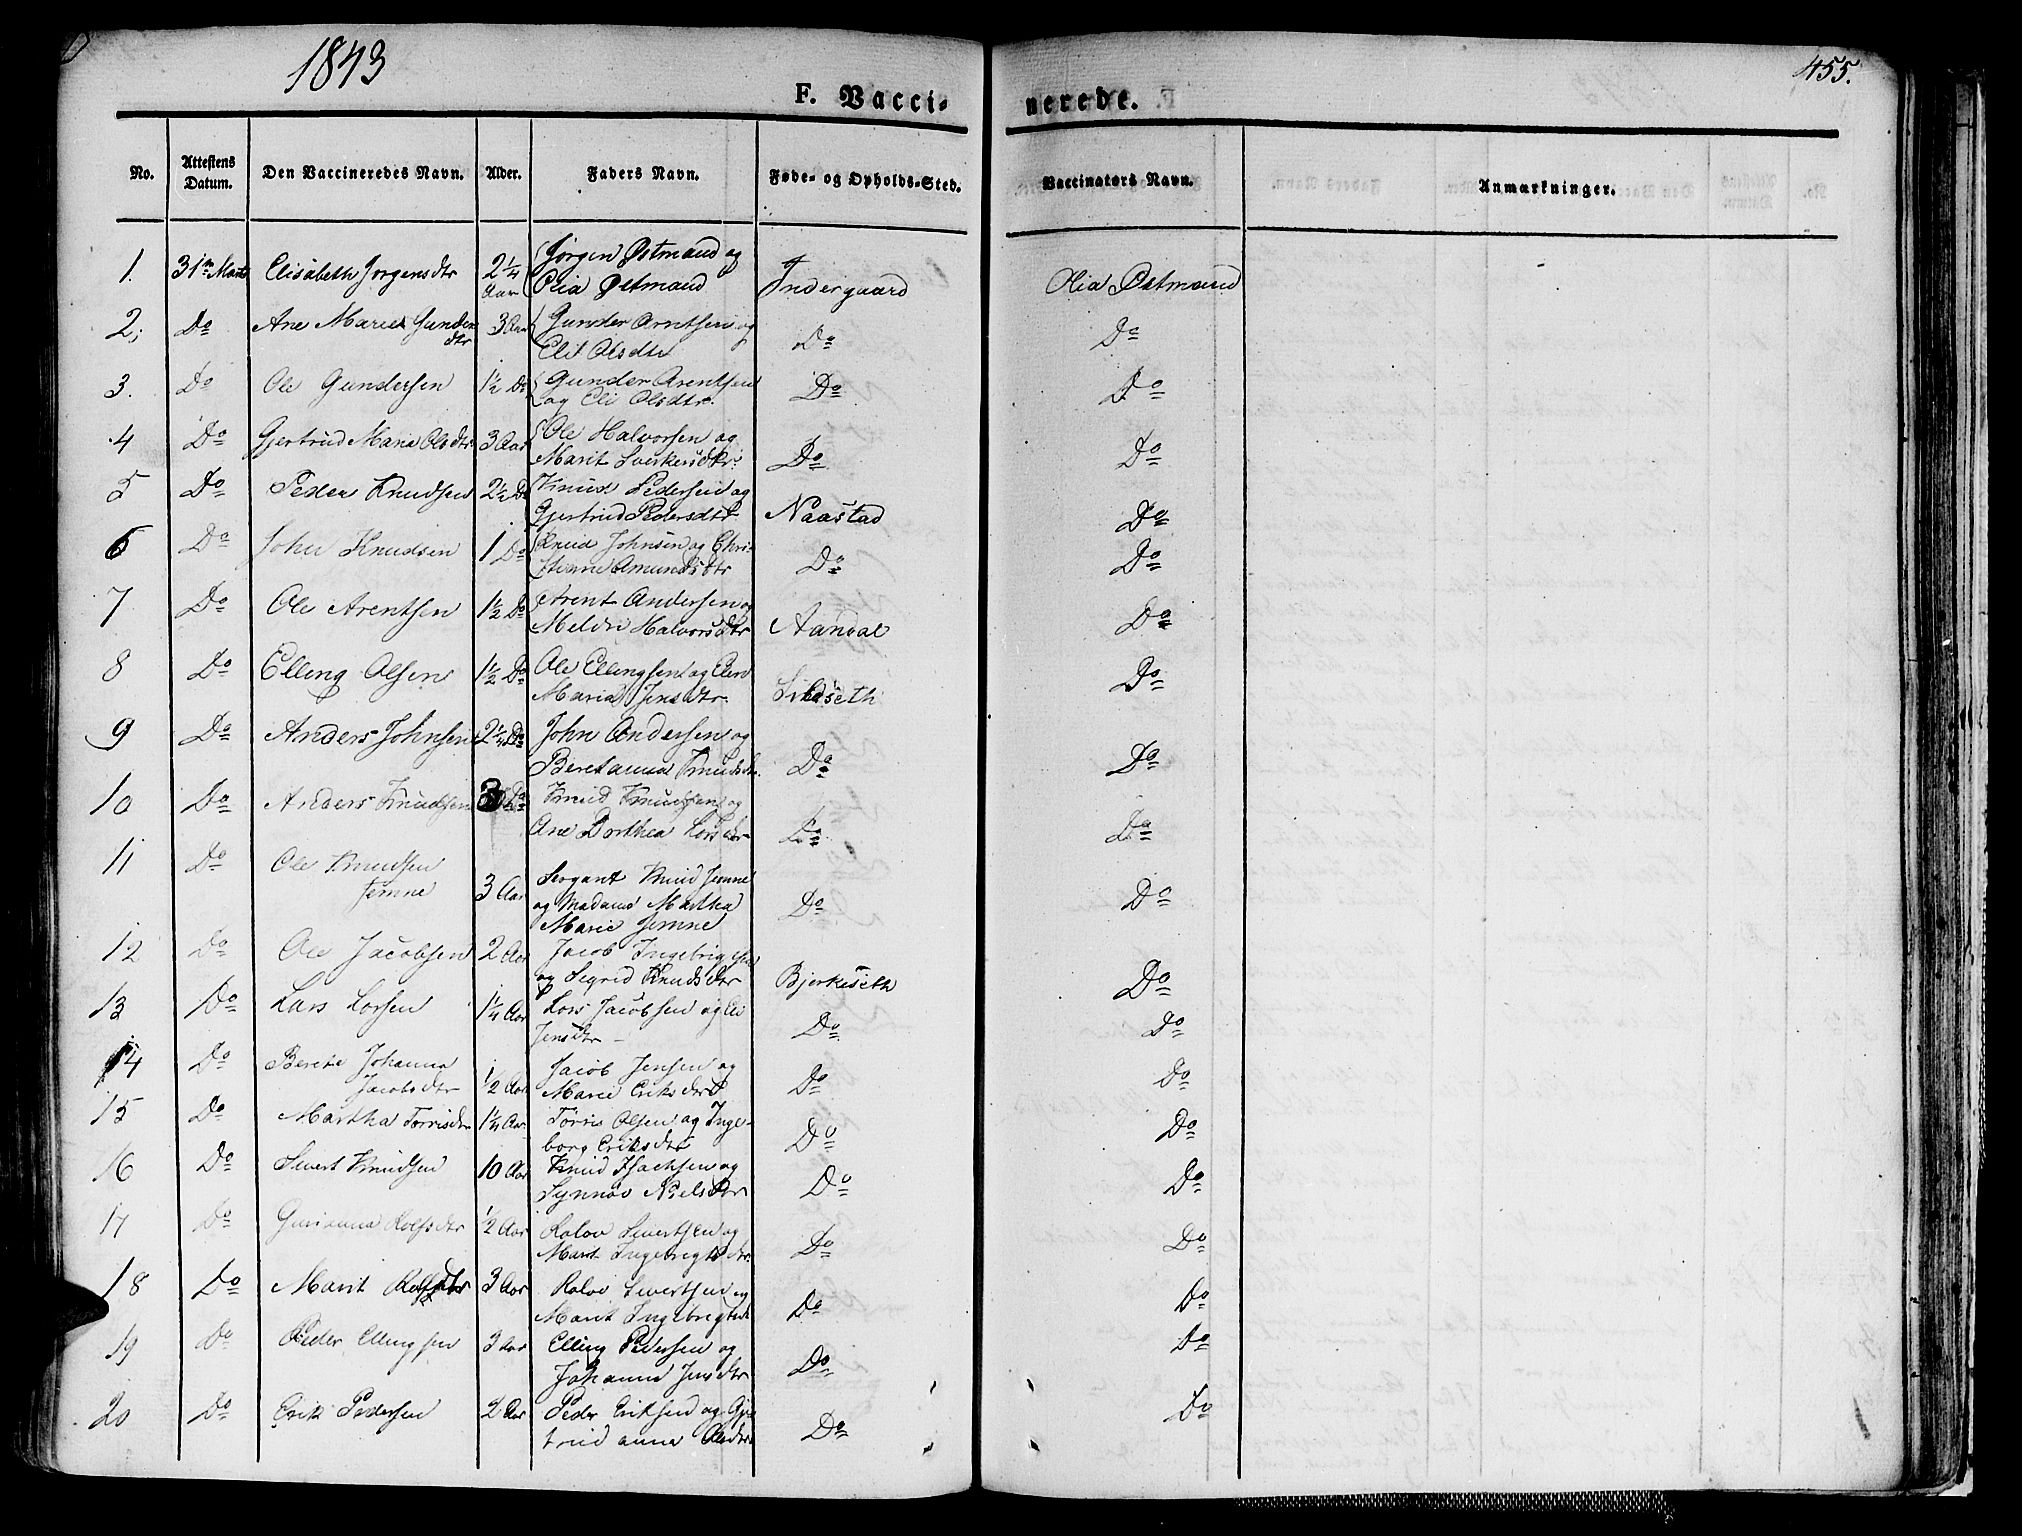 1843
455.
F. Vacci-
nerede.
No.
Attestens Datum.
Den Vaccineredes Navn.
Alder.
Faders Navn.
Føde- og Opholds-Sted.
Vaccinatørs Navn.
Anmærkninger.
1. 31te Marts Elisabeth Jørgensdtr 2 1/4 Aar Jørgen Østmand og
Olia Østmand Indergaard Olia Østmand
2. Do Ane Marie Gunders
dtr 3 Aar Gunder Arntsen og
Elit Olsdtr Do Do
3. Do Ole Gundersen 1 1/2 Do Gunder Arentsen
og Eli Olsdtr. Do Do
4 Do Gjertrud Maria Olsdtr 3 Aar Ole Halvorsen og
Marit Sverkersdtr. Do Do
5 Do Peder Knudsen 2 1/2 Do Knud Pedersen og
Gjertrud Pedersdtr Naastad Do
6 Do John Knudsen 1 Do Knud Johnsen og Chri-
stianne Amundsdtr Do Do
7 Do Ole Arentsen 1 1/2 Do Arent Andersen og
Meldri Halvorsdtr Aandal Do
8 Do Elling Olsen 1 1/2 Do Ole Ellingsen og Elen
Maria Jensdtr. Sildseth Do
9 Do Anders Johnsen 2 1/4 Do John Andersen og
Beretanna Knudsdtr. Do Do
10 Do Anders Knudsen 3 Do Knud Knudsen og
Ane Dorthea Larsdtr Do Do
11 Do Ole Knudsen
Jemne 3 Aar Sergant Knud Jemne
og Madame Martha
Marie Jemne Do Do
12 Do Ole Jacobsen 2 Aar Jacob Ingebrigtsen
og Sigrid Knudsdtr Bjerkeseth Do
13 Do Lars Larsen 1 1/4 Aar Lars Jacobsen og Eli
Jensdtr Do Do
14 Do Berethe Johanna
Jacobsdtr 1/2 Aar Jacob Jensen og
Marie Eriksdtr Do Do
15 Do Martha Torrisdtr 1 1/4 Aar Torris Olsen og Inge-
borg Eriksdtr Do Do
16 Do Sivert Knudsen 10 Aar Knud Isachsen og
Synnøv Nielsdtr Do Do
17 Do Gurianna Rolfsdtr 1/2 Aar Rolov Sivertsen og
Marit Ingebrigtsdtr. Do Do
18 Do Marit Rolfsdtr 3 Aar Rolov Sivertsen og
Marit Ingebrigtsdtr Do Do
19 Do Peder Ellingsen 3 Aar Elling Pedersen og
Johanna Jensdtr Do Do
20 Do Erik Pedersen 2 Aar Peder Eriksen og Gjer
trud anna Olsdtr Do Do